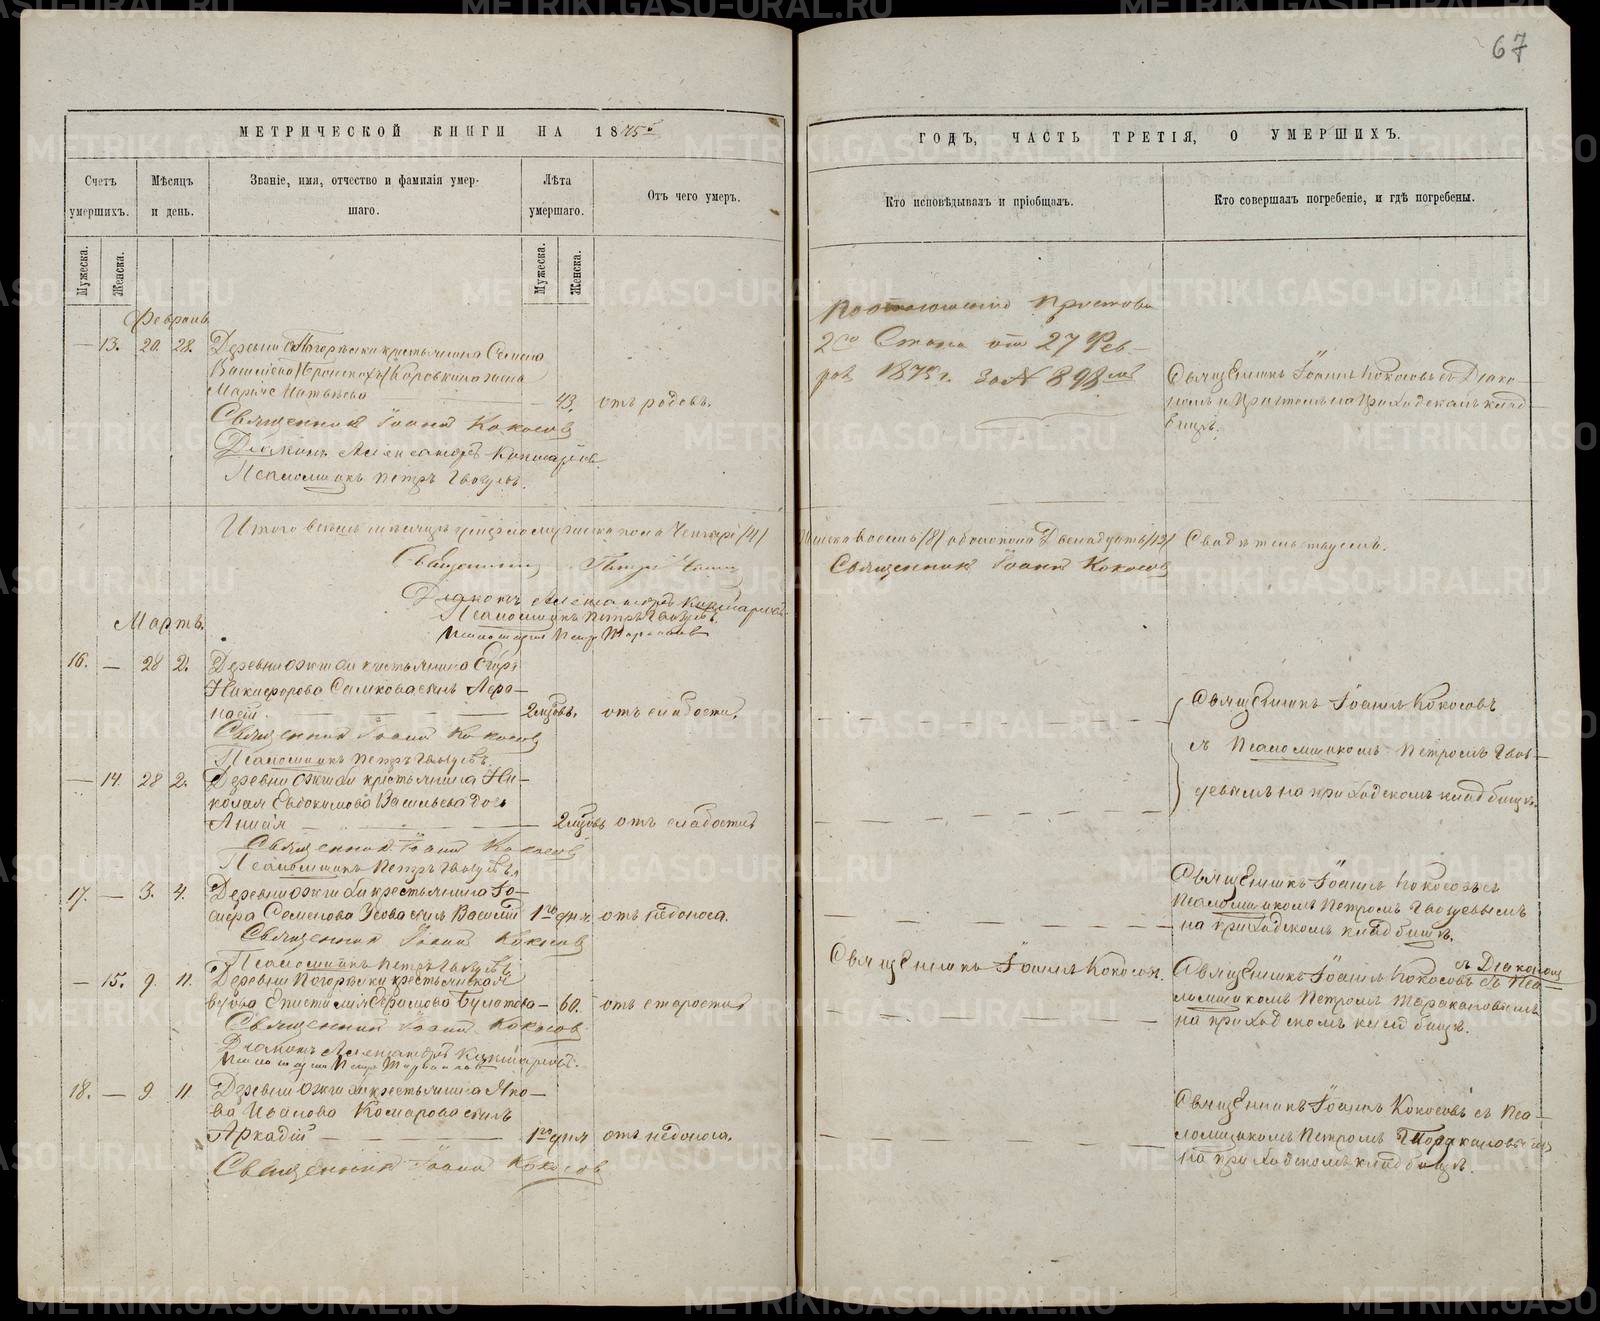 67
МЕТРИЧЕСКОЙ КНИГИ НА 1875й
ГОДЪ, ЧАСТЬ ТРЕТІЯ, О УМЕРШИХЪ.
Счетъ умершихъ.
Мѣсяцъ и день.
Званіе, имя, отчество и фамилія умер-
шаго.
Лѣта умершаго.
Отъ чего умеръ.
Кто исповѣдывалъ и пріобщалъ.
Кто совершалъ погребеніе, и гдѣ погребены.
Мужеска.
Женска.
Мужеска.
Женска.
Февраль
— 13. 20. 28. Деревни Погорѣлки крестьянина Семена
Васильева Коровкина жена
Марія Матвѣева — 43. отъ родовъ.
Священникъ Іоаннъ Кокосовъ
Діаконъ Александръ
Псаломщикъ Петръ Гвоздевъ.
По отношенію Пристава
2го Стана отъ 27 Фев-
1875 г. за № 898
Священникъ Іоаннъ Кокосовъ съ Діако-
номъ и Причтомъ на Приходскомъ клад-
бищѣ.
Итого въ семъ мѣсяцѣ умерло мужеска пола Четыре /4/
женска восемь /8/ обоего пола Двенадцать /12/ Свидѣтельствуемъ.
Священникъ Петръ
Священникъ Іоаннъ Кокосовъ
Діаконъ Александръ
Псаломщикъ Петръ Гвоздевъ.
Псаломщикъ Петръ Таракановъ
Мартъ.
16. — 28 2. Деревни крестьянина
Никифорова сынъ Афа-
насій — 2 мѣсяц. отъ слабости.
Священникъ Іоаннъ Кокосовъ
Псаломщикъ Петръ Гвоздевъ.
Священникъ Іоаннъ Кокосовъ
съ Псаломщикомъ Петромъ Гвоз-
девымъ на приходскомъ кладбищѣ.
— 14. 28 2. Деревни крестьянина Ни-
колая Евдокимова Васильева дочь
Анна — 2 мѣсяц. отъ слабости
Священникъ Іоаннъ Кокосовъ
Псаломщикъ Петръ Гвоздевъ.
17. — 3. 4. Деревни крестьянина
Семенова Усова сынъ Василій 1го дня отъ недоноса.
Священникъ Іоаннъ Кокосовъ
Псаломщикъ Петръ Гвоздевъ
Священникъ Іоаннъ Кокосовъ съ
Псаломщикомъ Петромъ Гвоздевымъ
на приходскомъ кладбищѣ.
— 15. 9. 11. Деревни Погорѣлки крестьянская
вдова — 60. отъ старости
Священникъ Іоаннъ Кокосовъ
Діаконъ Александръ
Псаломщикъ Петръ Таракановъ
Священникъ Іоаннъ Кокосовъ.
съ Діакономъ
Священникъ Іоаннъ Кокосовъ съ Пса-
ломщикомъ Петромъ Таракановымъ
на приходскомъ кладбищѣ.
18. — 9 11 Деревни крестьянина Яко-
ва Иванова Комарова сынъ
Аркадій — 1го дня отъ недоноса.
Священникъ Іоаннъ Кокосовъ
Священникъ Іоаннъ Кокосовъ съ Пса-
ломщикомъ Петромъ Таракановымъ
на приходскомъ кладбищѣ.
METRIKI.GASO-URAL.RU